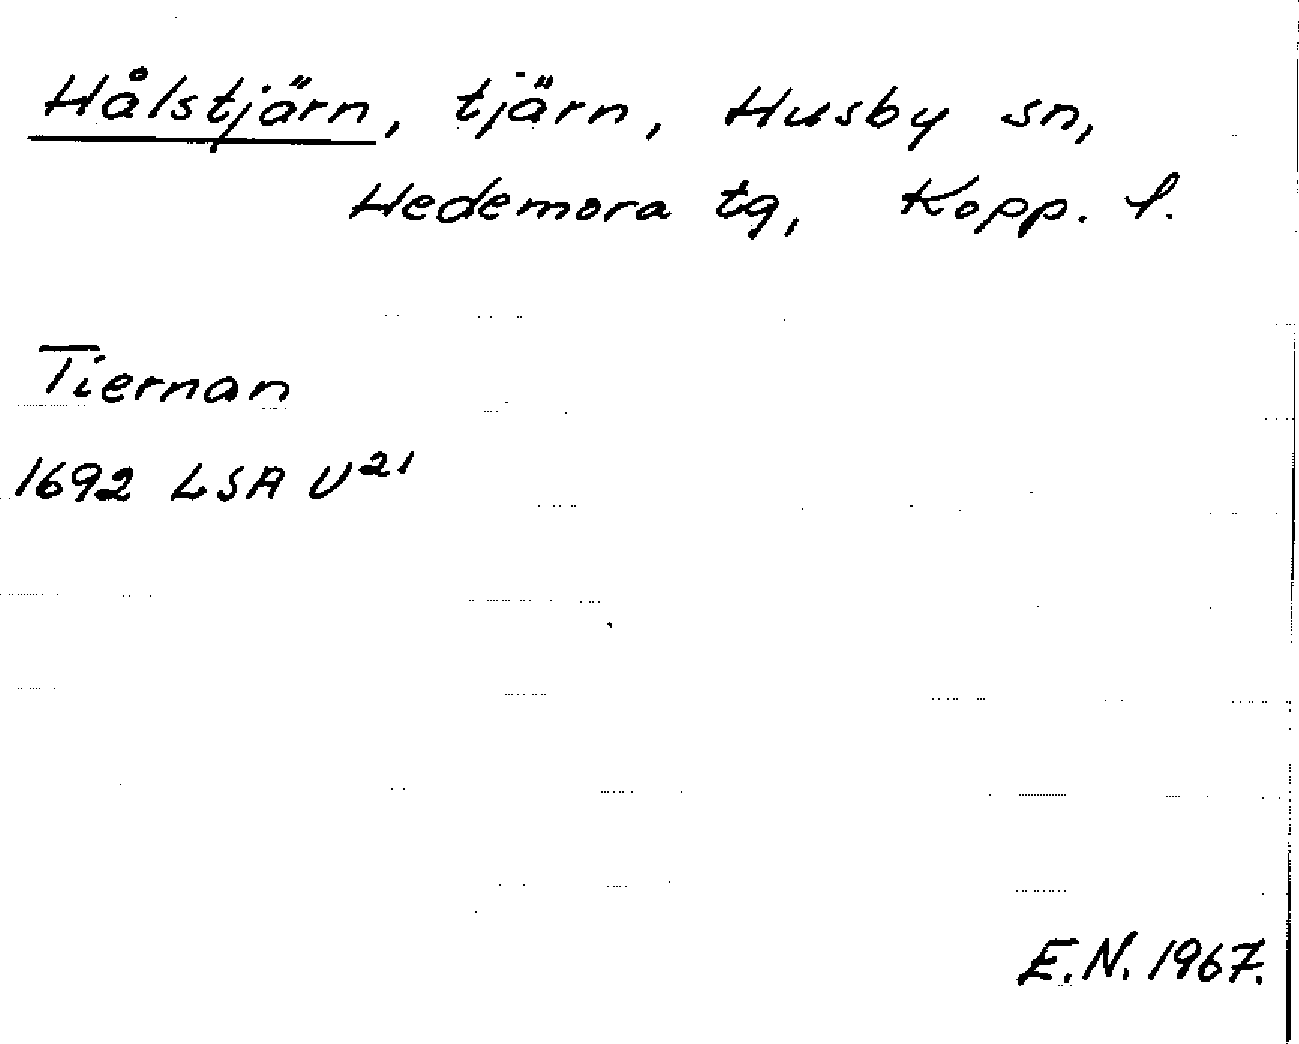 Hålstjärn, tjärn, Husby sn,
Hedemora tg, Kopp. l.
Tiernan
1692 LSA U²¹
E.N. 1967.